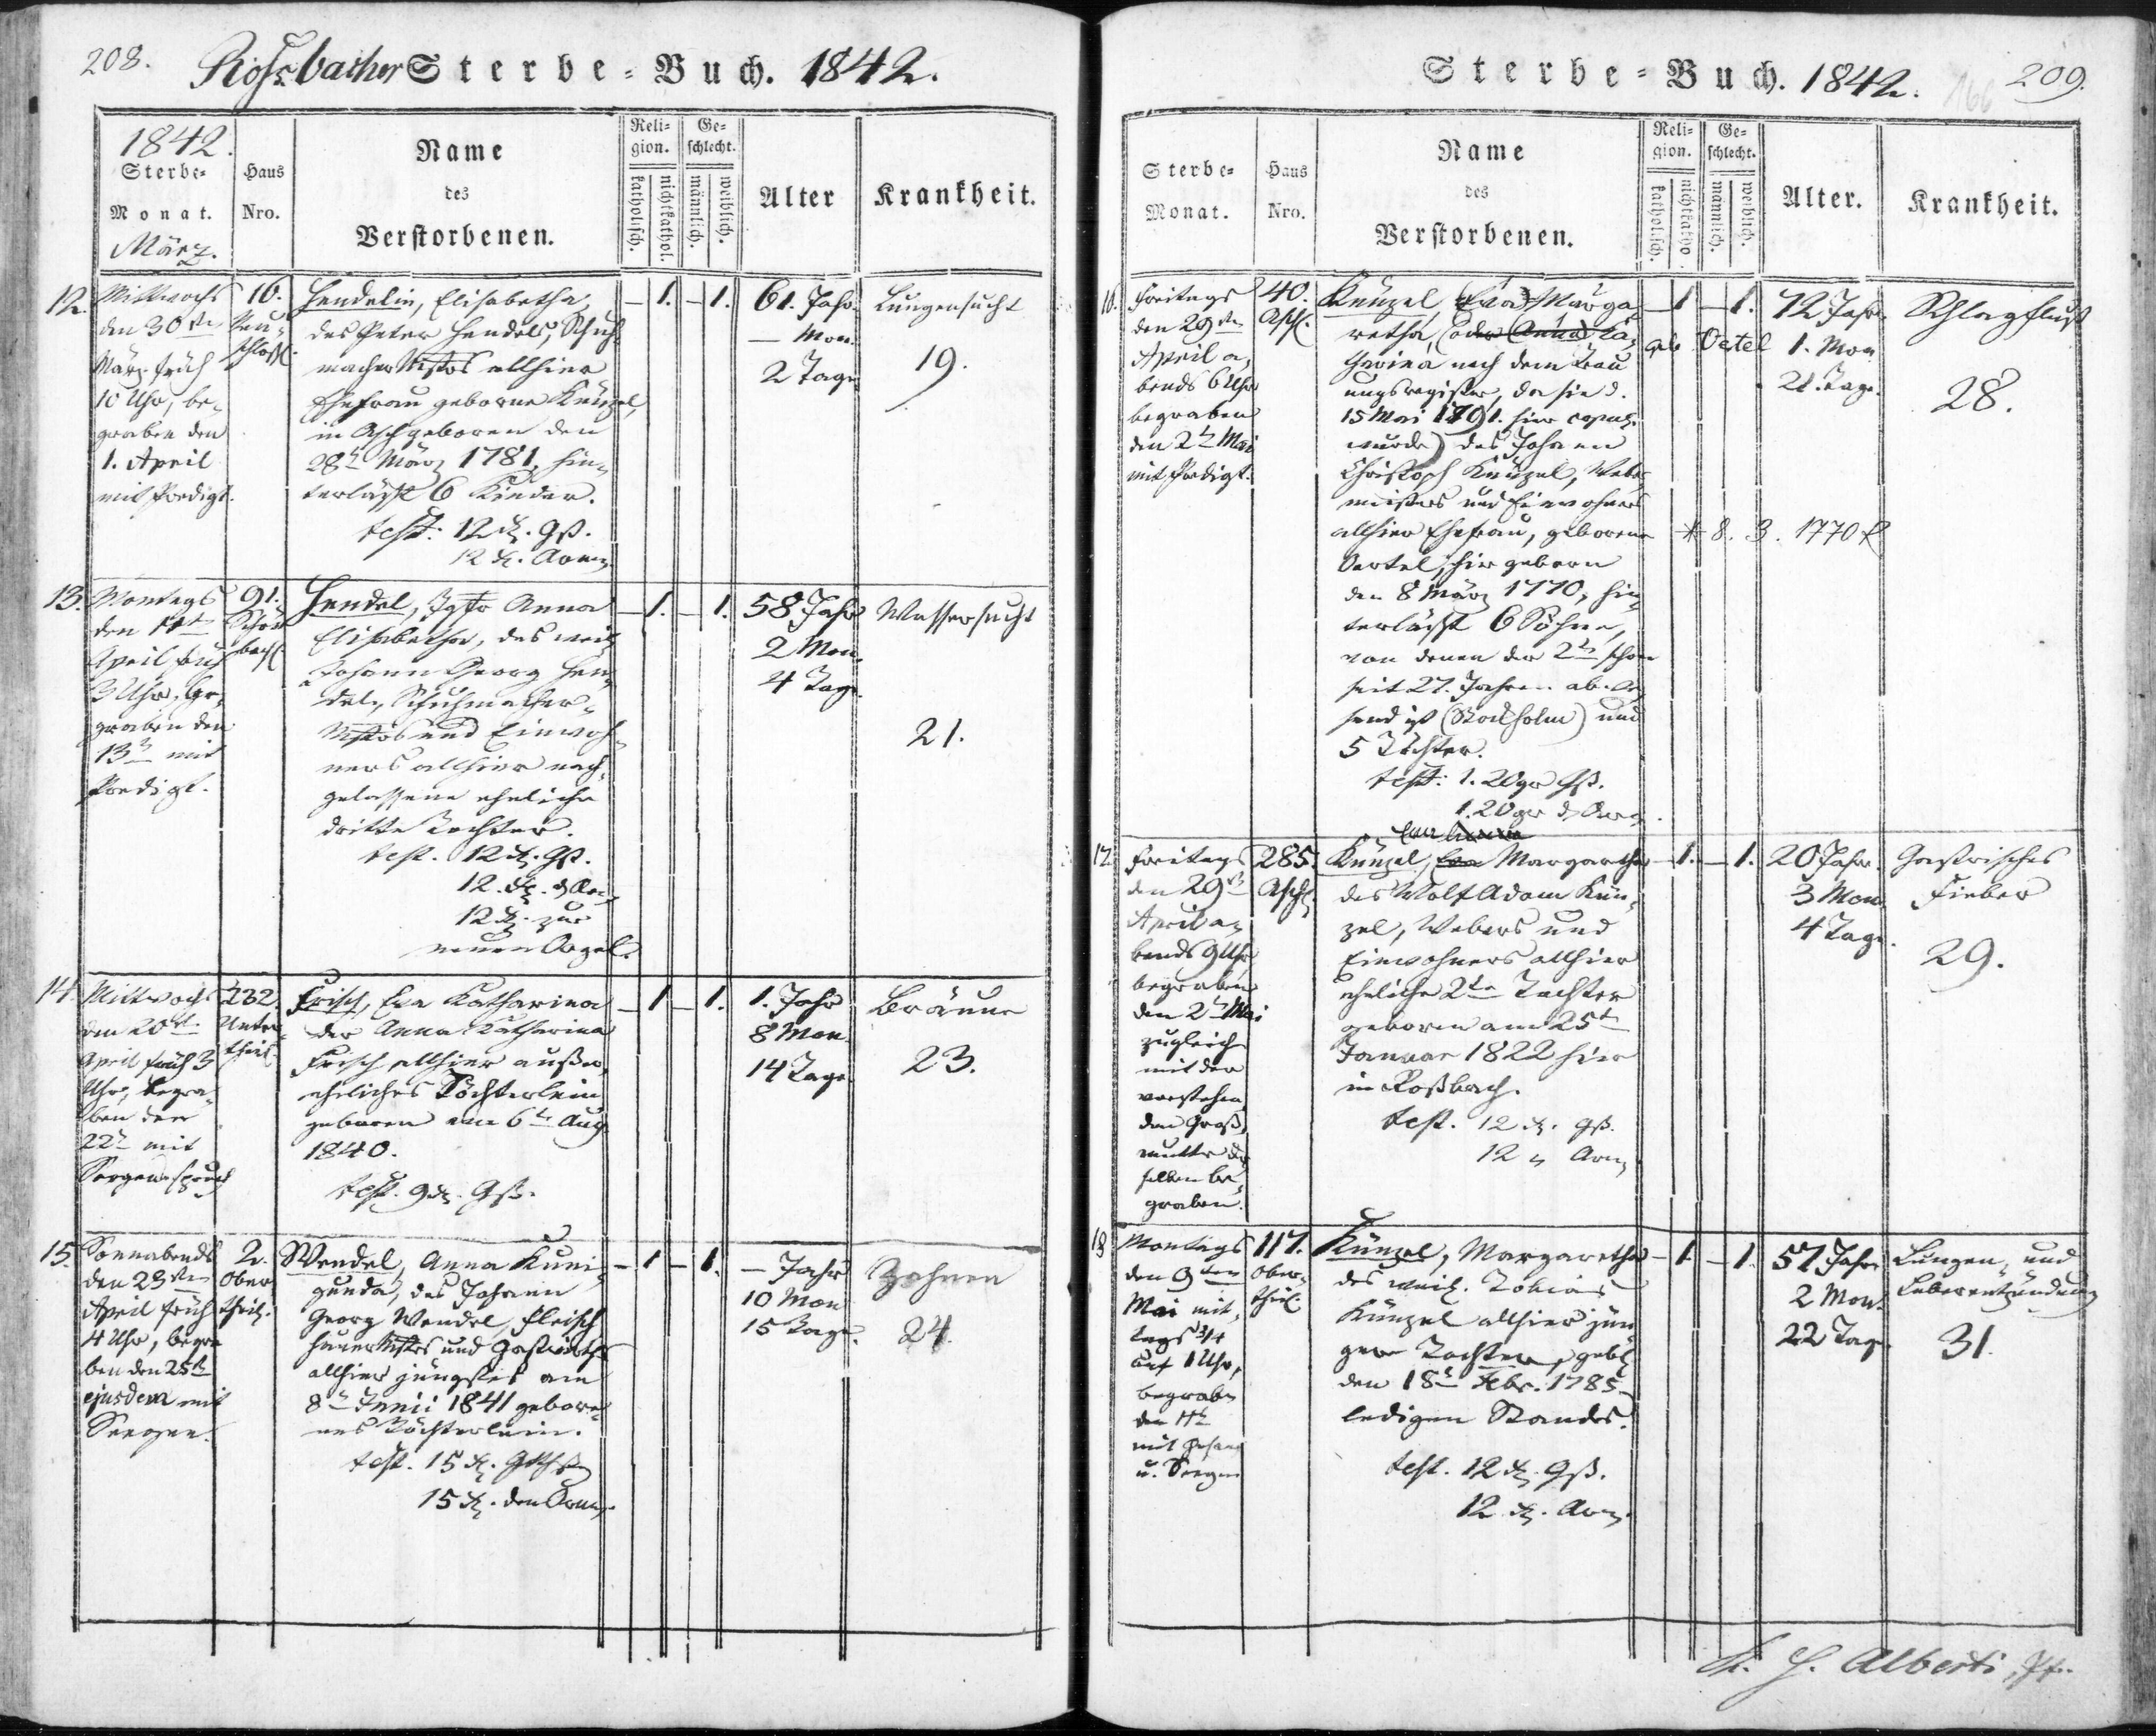 208.
Roßbacher Sterbe-Buch. 1842.
1842.
Sterbe-
Monat.
März.
Haus
Nro.
Name
des
Verstorbenen.
Reli-
gion.
katholisch.
nichtkathol.
Ge-
schlecht.
männlich.
weiblich.
Alter
Krankheit.
12.
Mittwochs
den 30ten
März früh
10 Uhr, be-
graben den
1. April
mit Predigt.
16.
Neu-
schloß.
Hendelin, Elisabetha,
des Peter Hendels, Schuh-
macher Mstrs allhier
Ehefrau geborne Künzel,
in Asch geboren den
28t März 1781, hin-
terläßt 6 Kinder.
test. 12 x. Gß.
12 x. Arm.
– 1. – 1.
61. Jahr
— Mon.
2 Tage
Lungensucht
19.
13.
Montags
den 11ten
April früh
3 Uhr, be-
graben den
13t mit
Predigt.
91.
Schön
bach.
Hendel, Jgfr Anna
Elisabetha, des weil.
Johann Georg Hen-
dels, Schuhmacher-
Mstrs und Einwoh-
ners allhier nach-
gelassene eheliche
dritte Tochter.
test. 12 x. Gß.
12. x. d. Arm.
12 x. zur
neuen Orgel.
– 1. – 1.
58 Jahr
2 Mon.
4 Tage.
Wassersucht
21.
14.
Mittwochs
den 20t
April früh 3
Uhr, begra-
ben den
22t mit
Segenspruch
232.
Unter-
theil.
Frisch, Eva Katharina
der Anna Katharina
Frisch allhier außer-
eheliches Töchterlein
geboren am 6ten Aug.
1840.
test. 9 x. Gß.
– 1 – 1.
1. Jahr
8 Mon.
14 Tage
Bräune
23.
15.
Sonnabends
den 23ten
April früh
4 Uhr, begra
ben den 25t
ejusdem mit
Seegen.
2.
Ober
theil.
Wendel, Anna Kuni-
gunda, des Johann
Georg Wendel, Fleisch
hauer Mstrs und Gastwirths
allhier jüngstes am
8t Junii 1841 gebore-
nes Töchterlein.
test. 15 x.
15 x. den Arm.
– 1 – 1.
— Jahr
10 Mon
15 Tage.
Zahnen
24.
Sterbe-Buch. 1842.
166
209.
Sterbe-
Monat.
Haus
Nro.
Name
des
Verstorbenen.
Reli-
gion.
katholisch.
nichtkatho.
Ge-
schlecht.
männlich.
weiblich.
Alter.
Krankheit.
16.
Freitags
den 29ten
April a-
bends 6 Uhr
begraben
den 2t Mai
mit Predigt.
40.
Asch.
Künzel, (Eva) Marga-
retha, (oder Anna Ka-
tharina nach dem Trau
ungsregister, da sie d.
15 Mai 1791. hier copul.
wurde) des Johann
Christoph Künzel, Weber-
meisters und Einwohners
allhier Ehefrau, geborene
Oertel, hier geboren
den 8 März 1770, hin-
terläßt 6 Söhne,
von denen der 2te schon
seit 27. Jahren abwe-
send ist (Stockholm) und
5 Töchter.
test. 1. 20 gr Gß.
1. 20 gr d. Arm.
– 1 – 1.
geb. Oetel
* 8. 3. 1770 R
72 Jahr
1. Mon
21. Tage.
Schlagfluß
28.
17.
Freitags
den 29t
April a-
bends 9 Uhr
begraben
den 2t Mai
zugleich
mit der
vorstehen
den Groß-
mutter der
selben be-
graben.
285.
Asch.
Künzel, Eva Margaretha
des Wolf Adam Kün-
zel, Webers und
Einwohners allhier
eheliche 2te Tochter
geboren am 25t
Januar 1822 hier
in Roßbach.
test. 12 x. Gß.
12 " Arm.
– 1. – 1.
20 Jahr.
3 Mon.
4 Tage.
Gastrisches
Fieber
29.
18
Montags
den 9ten
Mai mit-
tags 3/4
auf 1 Uhr,
begraben
den 11t
mit Gesang
u. Seegen
117.
Ober-
theil.
Künzel, Margaretha
des weil. Tobias
Künzel allhier jün-
gere Tochter, geb.
den 18t Febr. 1785
ledigen Standes.
test. 12 x. Gß.
12. x. Arm.
– 1. – 1.
57 Jahr
2 Mon.
22 Tage
Lungen- und
Leberentzündung
31.
Alberti, Pf.